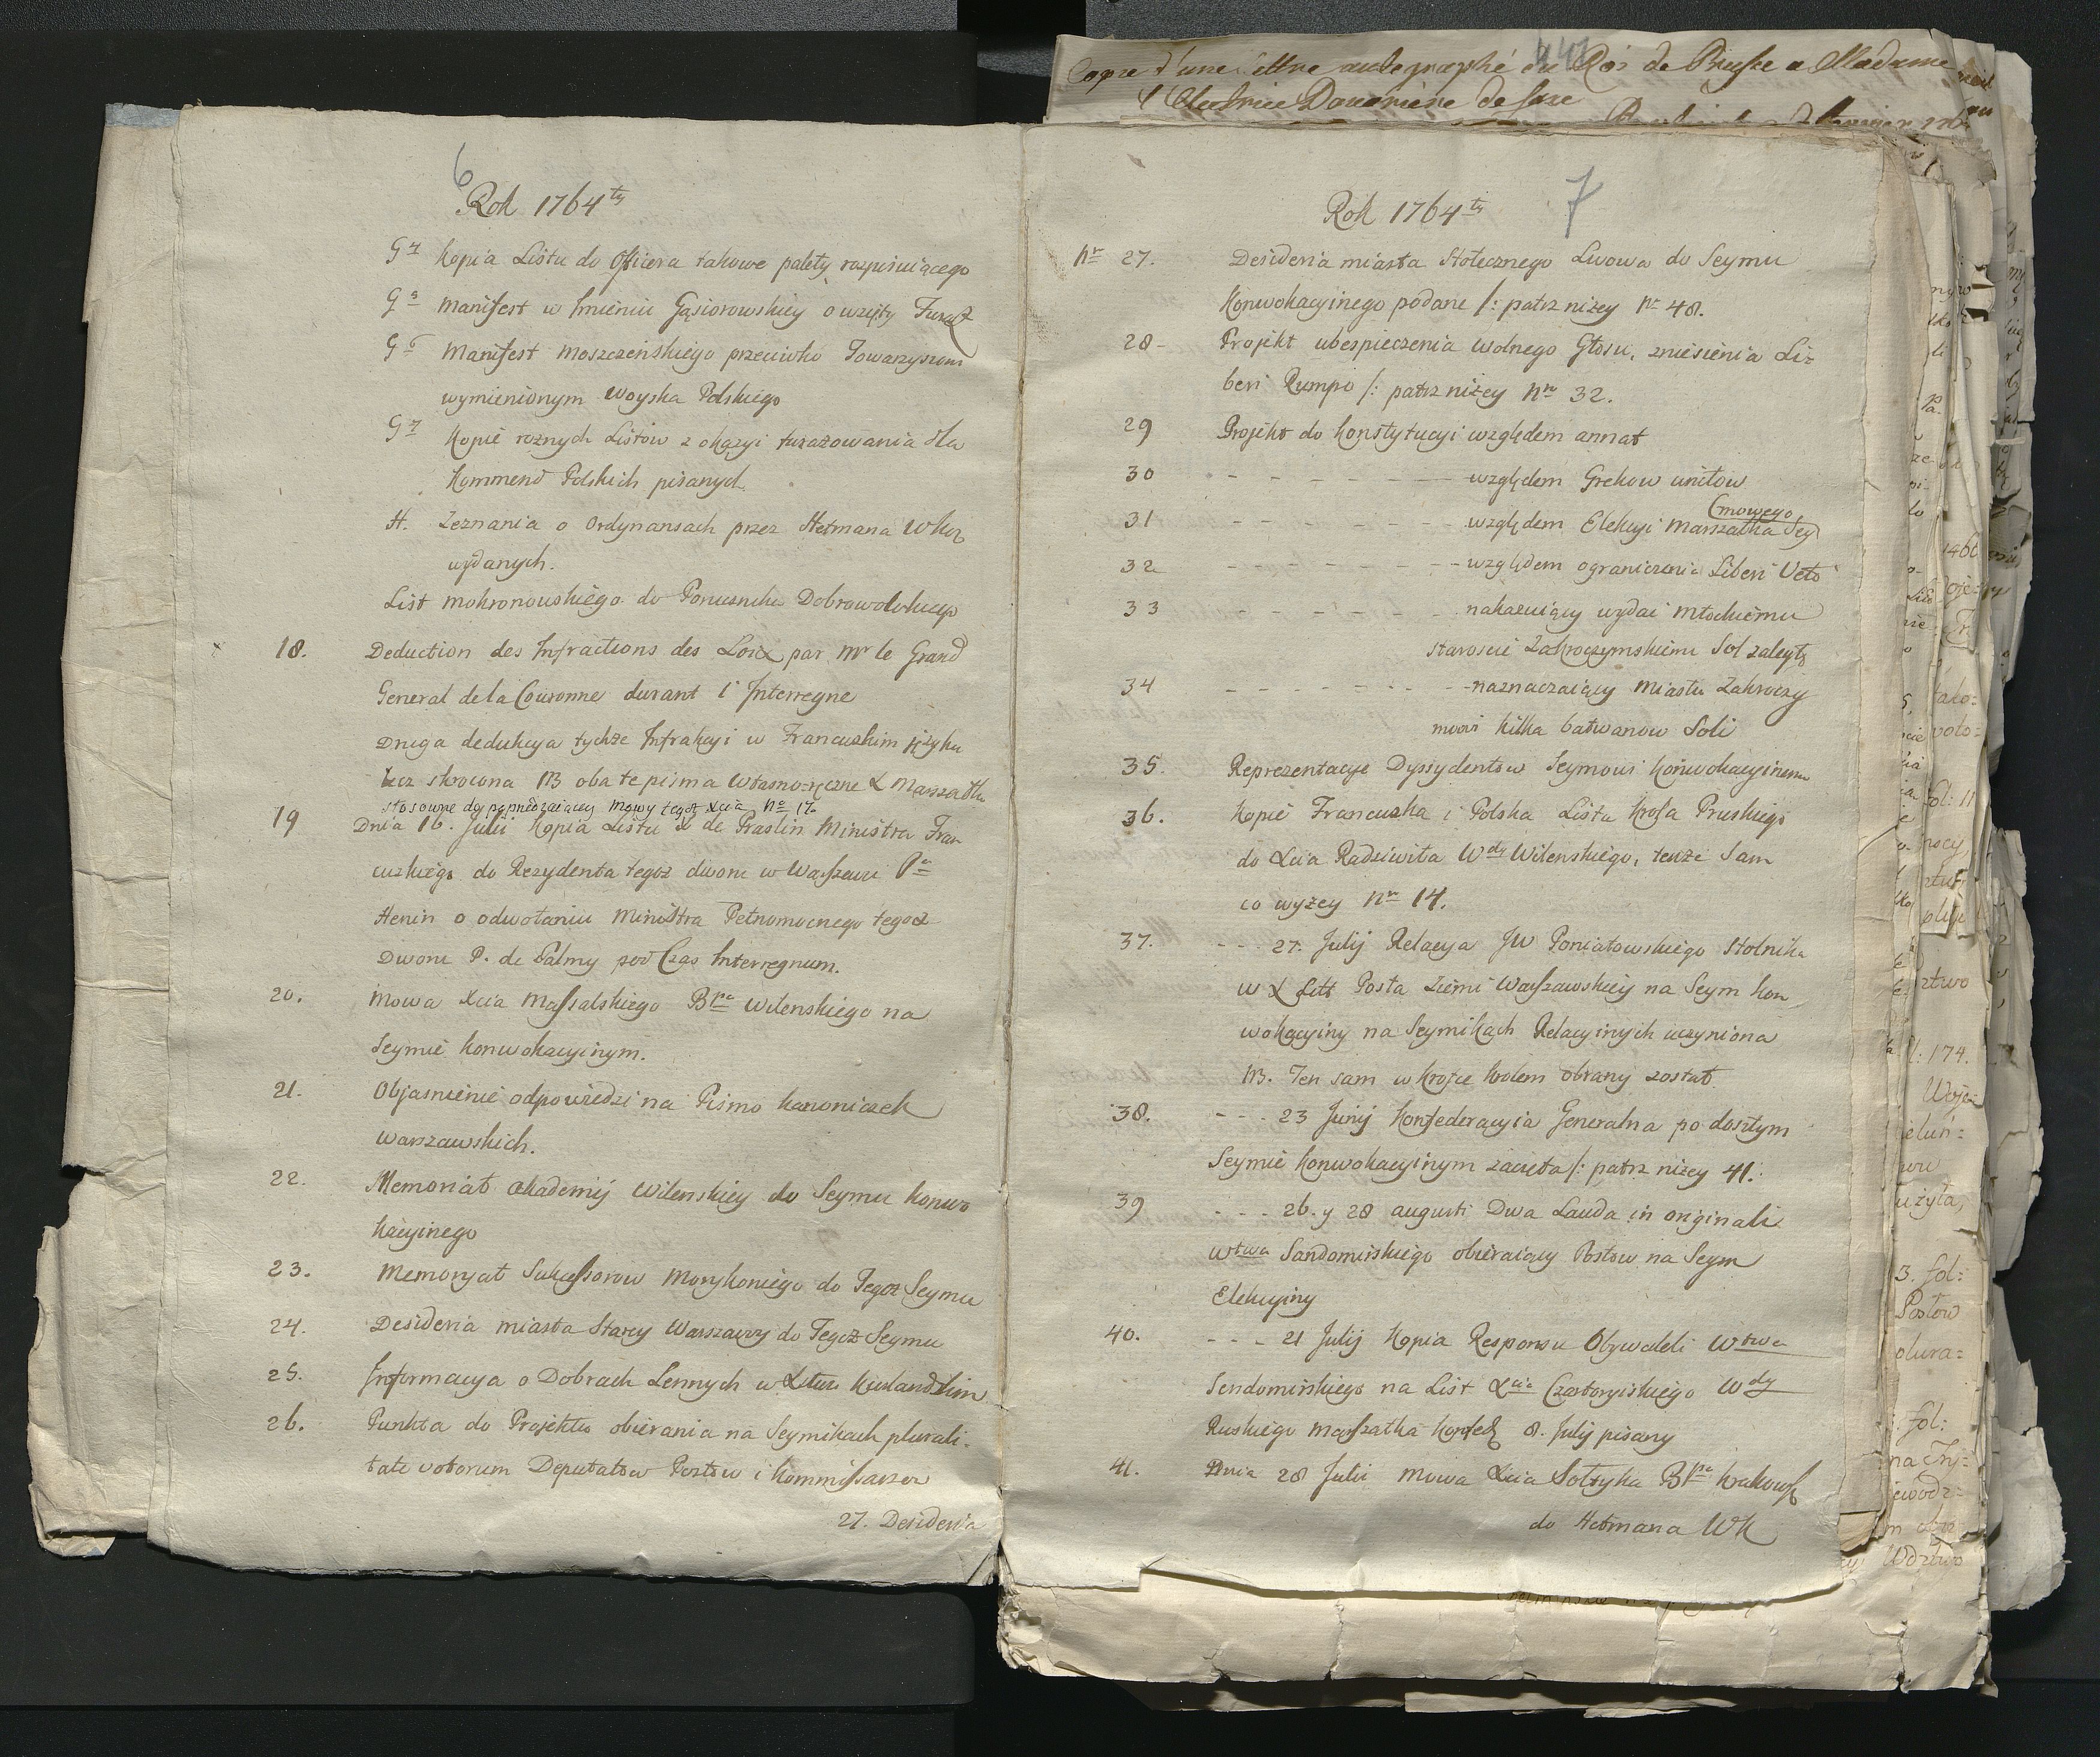 6
Rok 1764ty
G4 Kopia Listu do Officera takowe palety rozpisuiącego
G5 Manifest w Imieniu Gąsiorowskiey o wzięty Furasz
G6 Manifest Moszczeńskiego przeciwko Towarzyszom
wymienionym Woyska Polskiego
G7 Kopie roznych Listow z okazyi furazowania dla
Kommend Polskich pisanych
H. Zeznania o Ordynansach przez Hetmana WKor
wydanych.
List Mokronowskiego do Porucznika Dobrowolskiego
18. Deduction des Infractions des Loix par Mr le Grand
General de la Couronne durant l'Interregne
Druga dedukcya tychże Infrakcyi w Francuskim języku
lecz skrocona NB oba te pisma własno-ręczne X Marszałka
stosowne do poprzedzaiącey mowy tegoż Xcia No 17.
19 Dnia 16. Julii Kopia Listu X de Praslin Ministra Fran
cuzkiego do Rezydenta tegoż dworu w Warszawie Pa
Henin o odwołaniu Ministra Pełnomocnego tegoż
Dworu P. de Palmy pod Czas Interregnum.
20. Mowa Xcia Massalskiego Bpa Wilenskiego na
Seymie konwokacyinym.
21. Objasnienie odpowiedzi na Pismo kanoniczek
warszawskich.
22. Memoriał Akademij Wilenskiey do Seymu konwo
kacyinego
23. Memoryał Sukcessorow Morykoniego do Tegoż Seymu
24. Desideria miasta Starey Warszawy do Tegoż Seymu
25. Informacya o Dobrach Lennych w Xtwie Kurlandzkim
26. Punkta do Projektu obierania na Seymikach plurali-
tate votorum Deputatow Posłow i Kommissarzow
27. Desideria
7
Rok 1764ty
Nr 27. Desideria miasta Stołecznego Lwowa do Seymu
Konwokacyinego podane /: patrz niżey Nr 48.
28- Projekt ubespieczenia wolnego Głosu, zniesienia Li=
beri Rumpo /: patrz niżey Nr 32.
29 Projekt do konstytucyi względem annat
30 - - - - - - - względem Grekow unitow
31 - - - - - - - względem Elekcyi Marszałka Sey
(mowego
32 - - - - - - - względem ograniczenia Liberi Veto
33 - - - - - - - nakazuiący wydać Młockiemu
Staroscie Zakroczymskiemu Sol zaległą
34 - - - - - - - naznaczaiący Miastu Zakroczy
mowi kilka bałwanow Soli
35. Reprezentacye Dyssydentow Seymowi konwokacyinemu
36. Kopie Francuska i Polska Listu Krola Pruskiego
do Xcia Radziwiła Wdy Wilenskiego, tenże Sam
co wyżey Nr 14.
37. - - - 27. Julij Relacya JW Poniatowskiego Stolnika
W X Litt Posła Ziemi Warszawskiey na Seym kon
wokacyiny na Seymikach Relacyinych uczyniona
NB. Ten sam wkrotce krolem obrany został.
38. - - - 23 Junij Konfederacyia Generalna po doszłym
Seymie konwokacyinym zaczęta /: patrz niżey 41.
39 - - - 26. y 28 augusti Dwa Lauda in originali
Wtwa Sandomirskiego obieraiący Posłow na Seym
Elekcyiny
40. - - - 21 Julij Kopia Responsu Obywateli Wtwa
Sendomirskiego na List Xcia Czartoryiskiego Wdy
Ruskiego Marszałka Konfed 8. Julij pisany
41. Dnia 28 Julii Mowa Xcia Sołtyka Bpa Krakowsk
do Hetmana WK
Copie d'une lettre autographé du Roi de Prusse a Madame
l'Electrice Douariere de Saxe